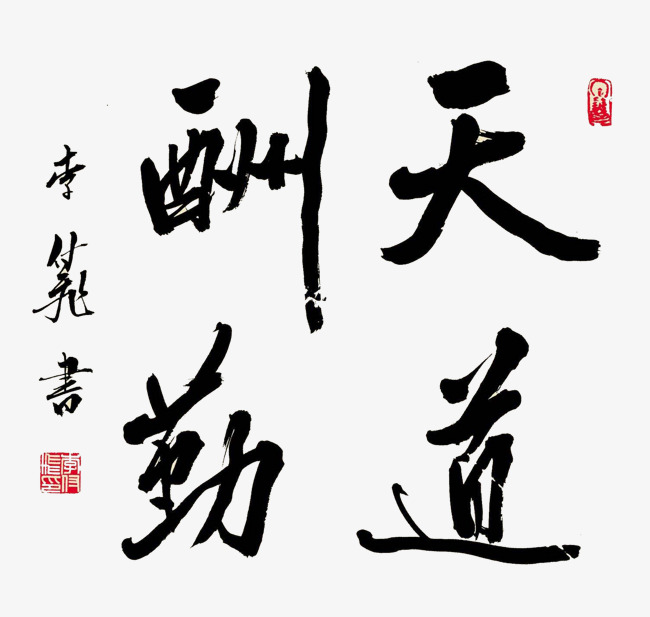 天道
酬勤
李
書